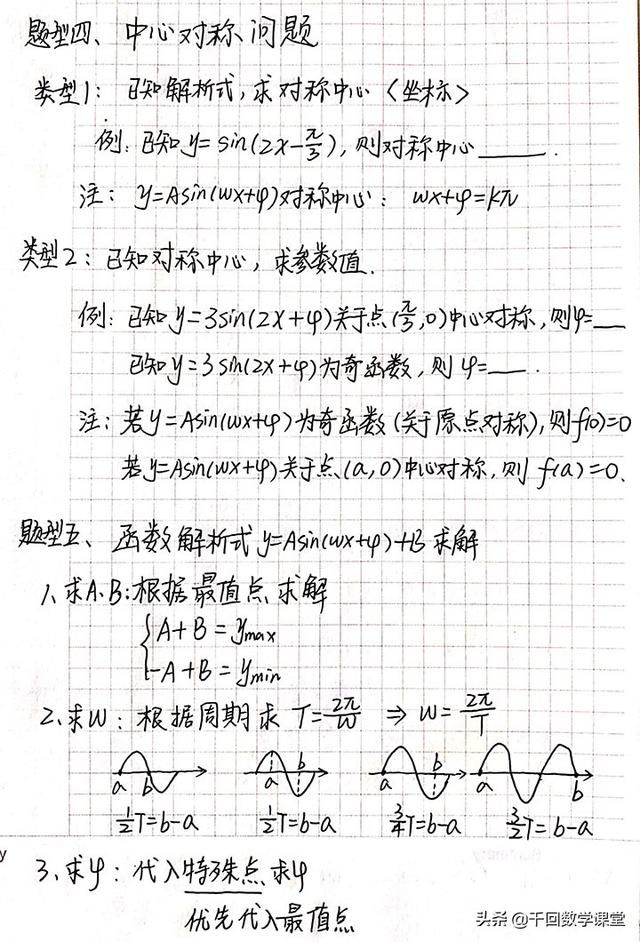 题型四、中心对称问题
类型1：已知解析式,求对称中心〈坐标〉
例：已知y=sin(2x-π/3),则对称中心____.
注：y=Asin(wx+φ)对称中心：wx+φ=kπ
类型2：已知对称中心，求参数值.
例：已知y=3sin(2x+φ)关于点(π/3,0)中心对称,则φ=__
已知y=3sin(2x+φ)为奇函数,则φ=__.
注：若y=Asin(wx+φ)为奇函数(关于原点对称),则f(0)=0
若y=Asin(wx+φ)关于点(a,0)中心对称,则f(a)=0.
题型五、函数解析式y=Asin(wx+φ)+B求解
1、求A.B:根据最值点求解
{A+B=ymax
-A+B=ymin
2、求w：根据周期求 T=2π/w ⇒ w=2π/T
a b a b a b a b
1/2T=b-a 1/2T=b-a 3/4T=b-a 3/2T=b-a
3、求φ：代入特殊点求φ
优先代入最值点
头条 @千回数学课堂